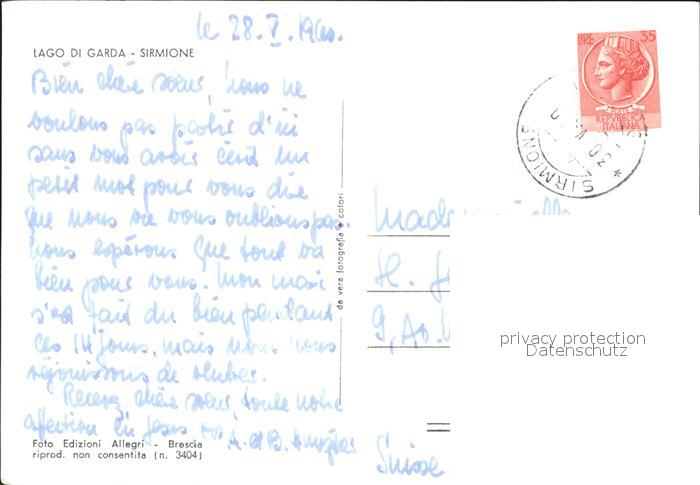 le 28. V. 1960.
LAGO DI GARDA - SIRMIONE
Bien chère sœur, nous ne
voulons pas partir d'ici
sans vous avoir écrit un
petit mot pour vous dire
que nous ne vous oublions pas.
Nous espérons que tout va
bien pour vous. Mon mari
s'est fait du bien pendant
ces 14 jours, mais nous nous
réjouissons de
Recevez chère sœur, toute notre
affection en Jésus A. et B.
Foto Edizioni Allegri - Brescia
riprod. non consentita (n. 3404)
da vera fotografia a colori
LIRE 35
POSTE
REPVBBLICA
ITALIANA
SIRMIONE
Mademoiselle
H.
9, Av.
Suisse
privacy protection
Datenschutz